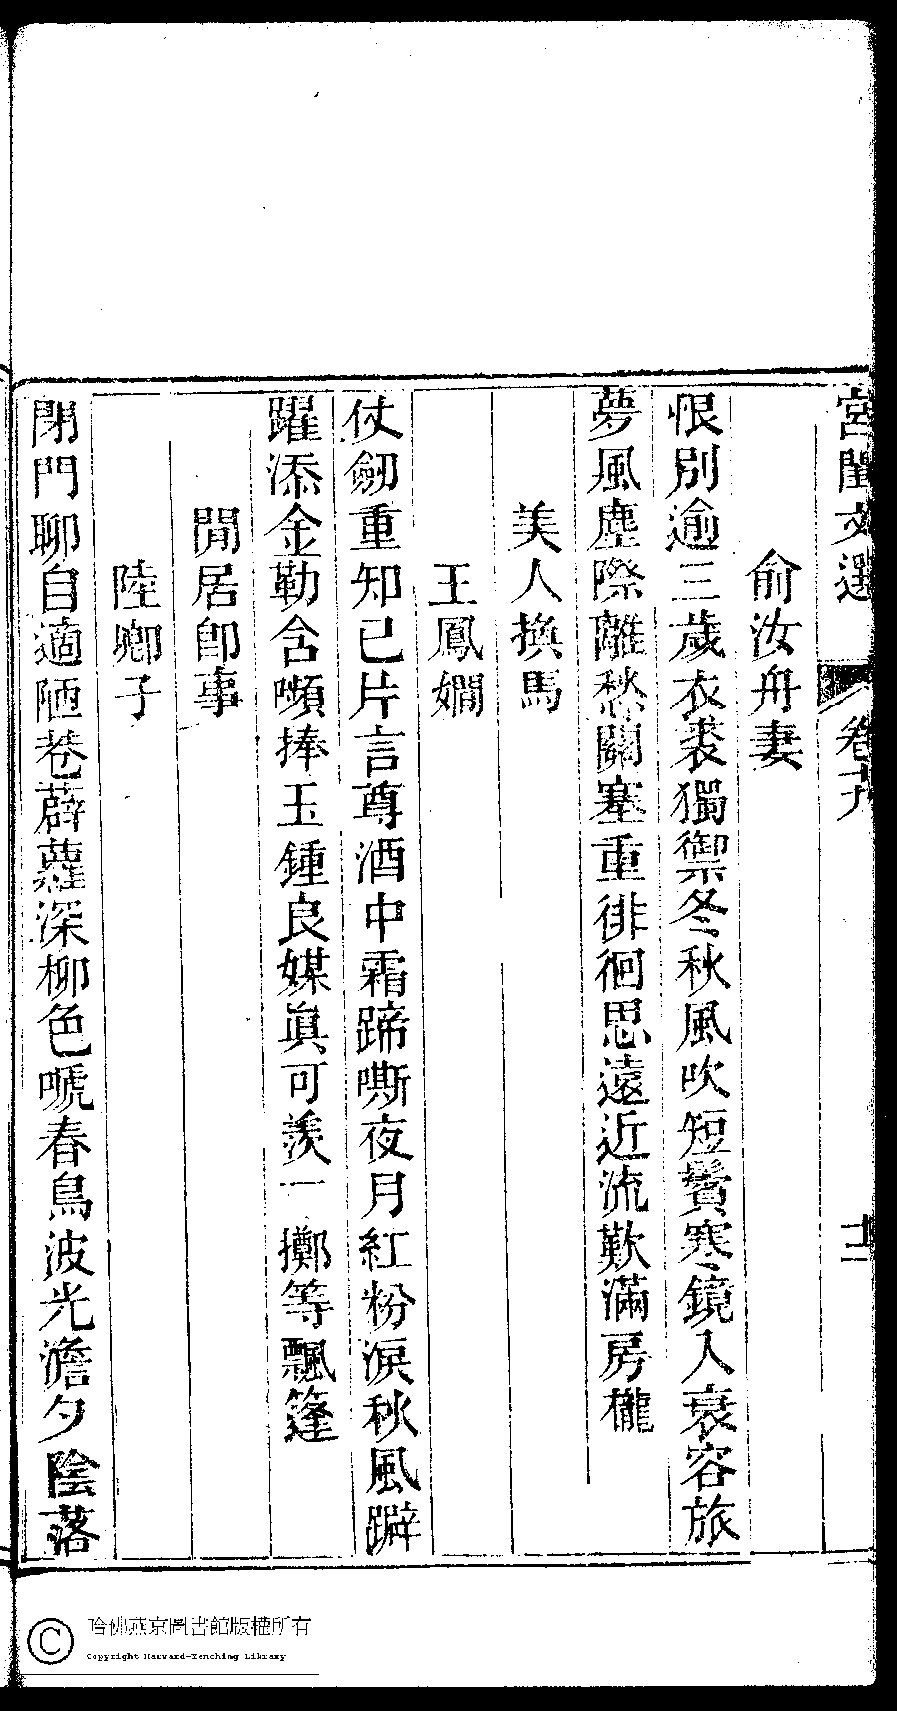 宮閨文選 卷十九 十二
俞汝舟妻
恨別逾三歲衣裘獨禦冬秋風吹短鬢寒鏡入衰容旅
夢風塵際離愁關塞重徘徊思遠近流歎滿房櫳
美人換馬
王鳳嫺
仗劒重知己片言尊酒中霜蹄嘶夜月紅粉淚秋風躃
躍添金勒含嚬捧玉鍾良媒眞可羨一擲等飄篷
閒居卽事
陸卿子
閉門聊自適陋巷薜蘿深柳色嗁春鳥波光澹夕陰落
哈佛燕京圖書館版權所有
Copyright Harvard-Yenching Library